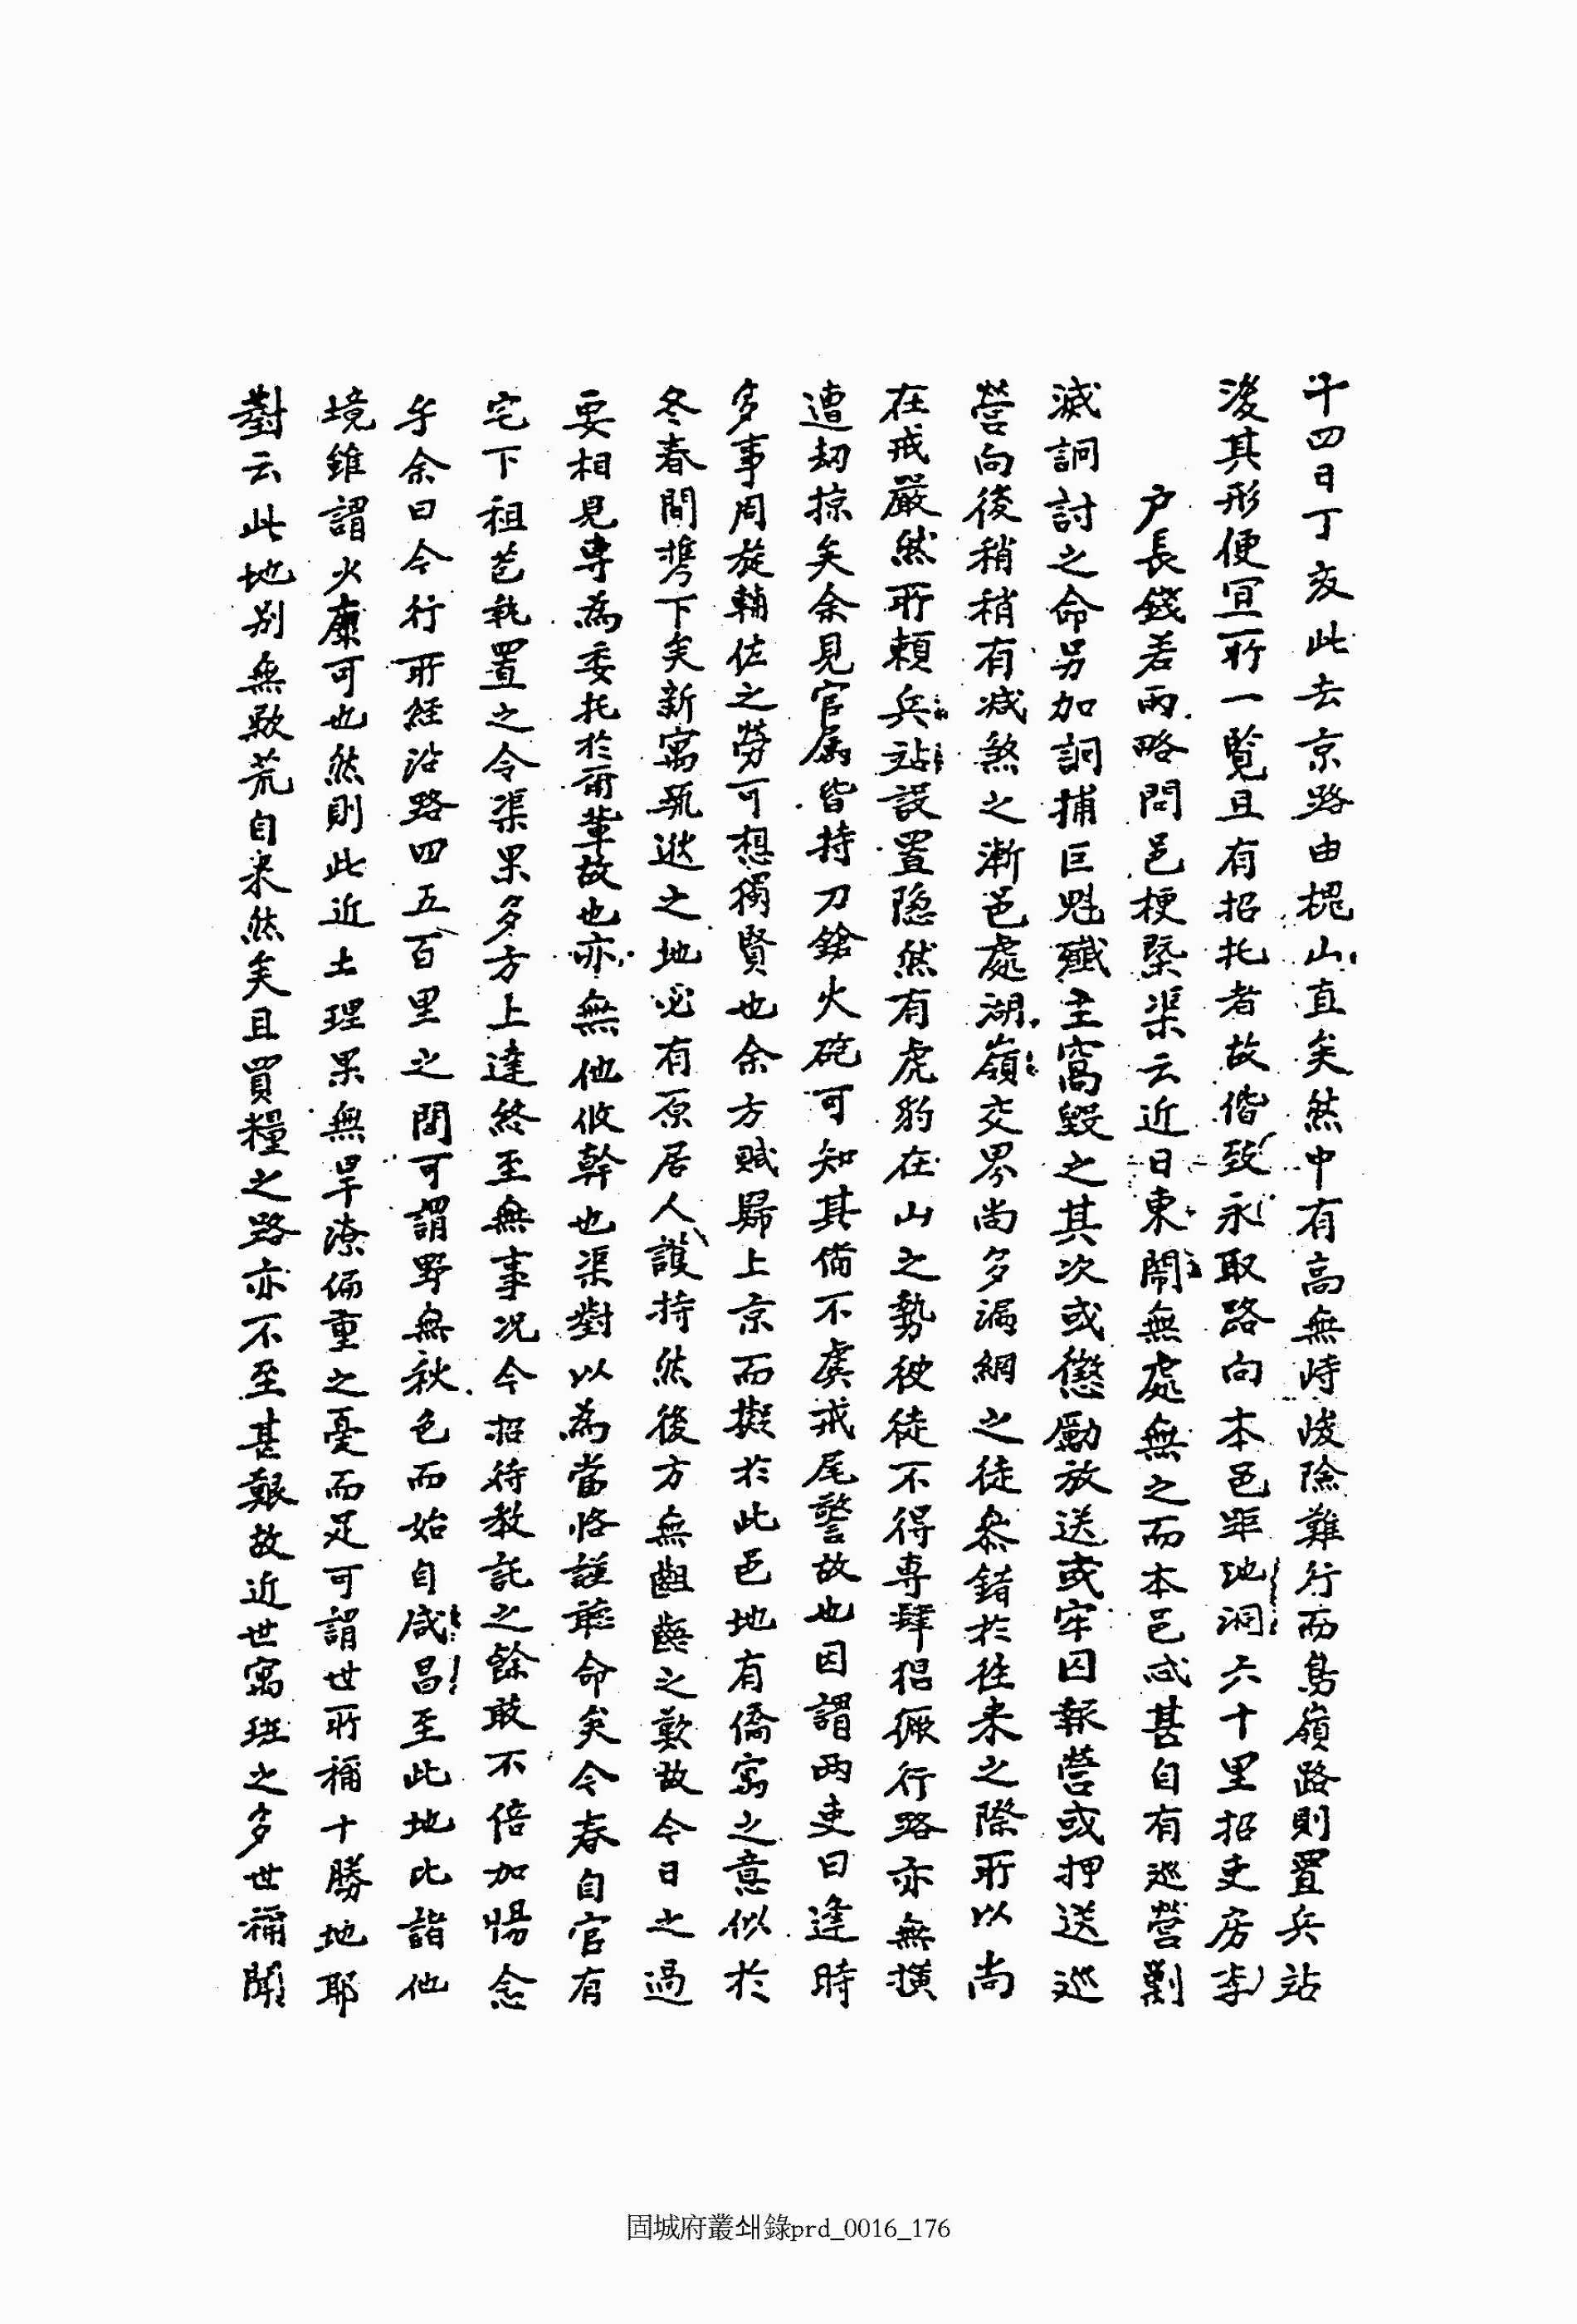 十四日丁亥此去京路由槐山直矣然中有高無峙峻險難行而鳥嶺路則置兵站
後其形便宜一所一覧且有招托者故偕致永取路向本邑距池洞六十里招吏房李
户長錢若兩略問邑梗槩渠云近日東鬧無處無之而本邑忒甚自有巡營剿
滅詗討之命另加詗捕巨魁殱主窩毀之其次或懲勵放送或牢囚報營或押送巡
營向後稍稍有减煞之漸邑處湖嶺交界尚多漏網之徒叅錯於徃来之際所以尚
在戒嚴然所頼兵站設置隐然有虎豹在山之勢彼徒不得専肆猖獗行路亦無撗
遭刼掠矣余見官属皆持刀鎗火砲可知其備不虞戒尾警故也因謂两吏曰逢時
多事周旋輔佐之勞可想獨賢也余方賦歸上京而擬於此邑地有僑寓之意似於
冬春間携下矣新寓瓢迯之地必有原居人護持然後方無齟齬之歎故今日之過
要相見専為委托於甭輩故也亦無他攸幹也渠對以為當恪謹聽命矣今春自官有
宅下租苞執置之令渠果多方上達終至無事况今招待教託之餘敢不倍加惕念
乎余曰今行所経沿路四五百里之間可謂野無秋色而始自咸昌至此地比諧他
境雖謂火廪可也然則此近土理果無旱潦偏重之憂而足可謂世所稱十勝地耶
對云此地别無敢荒自来然矣且買糧之路亦不至甚艱故近世寓班之多世稱聞
固城府叢쇄錄prd_0016_176